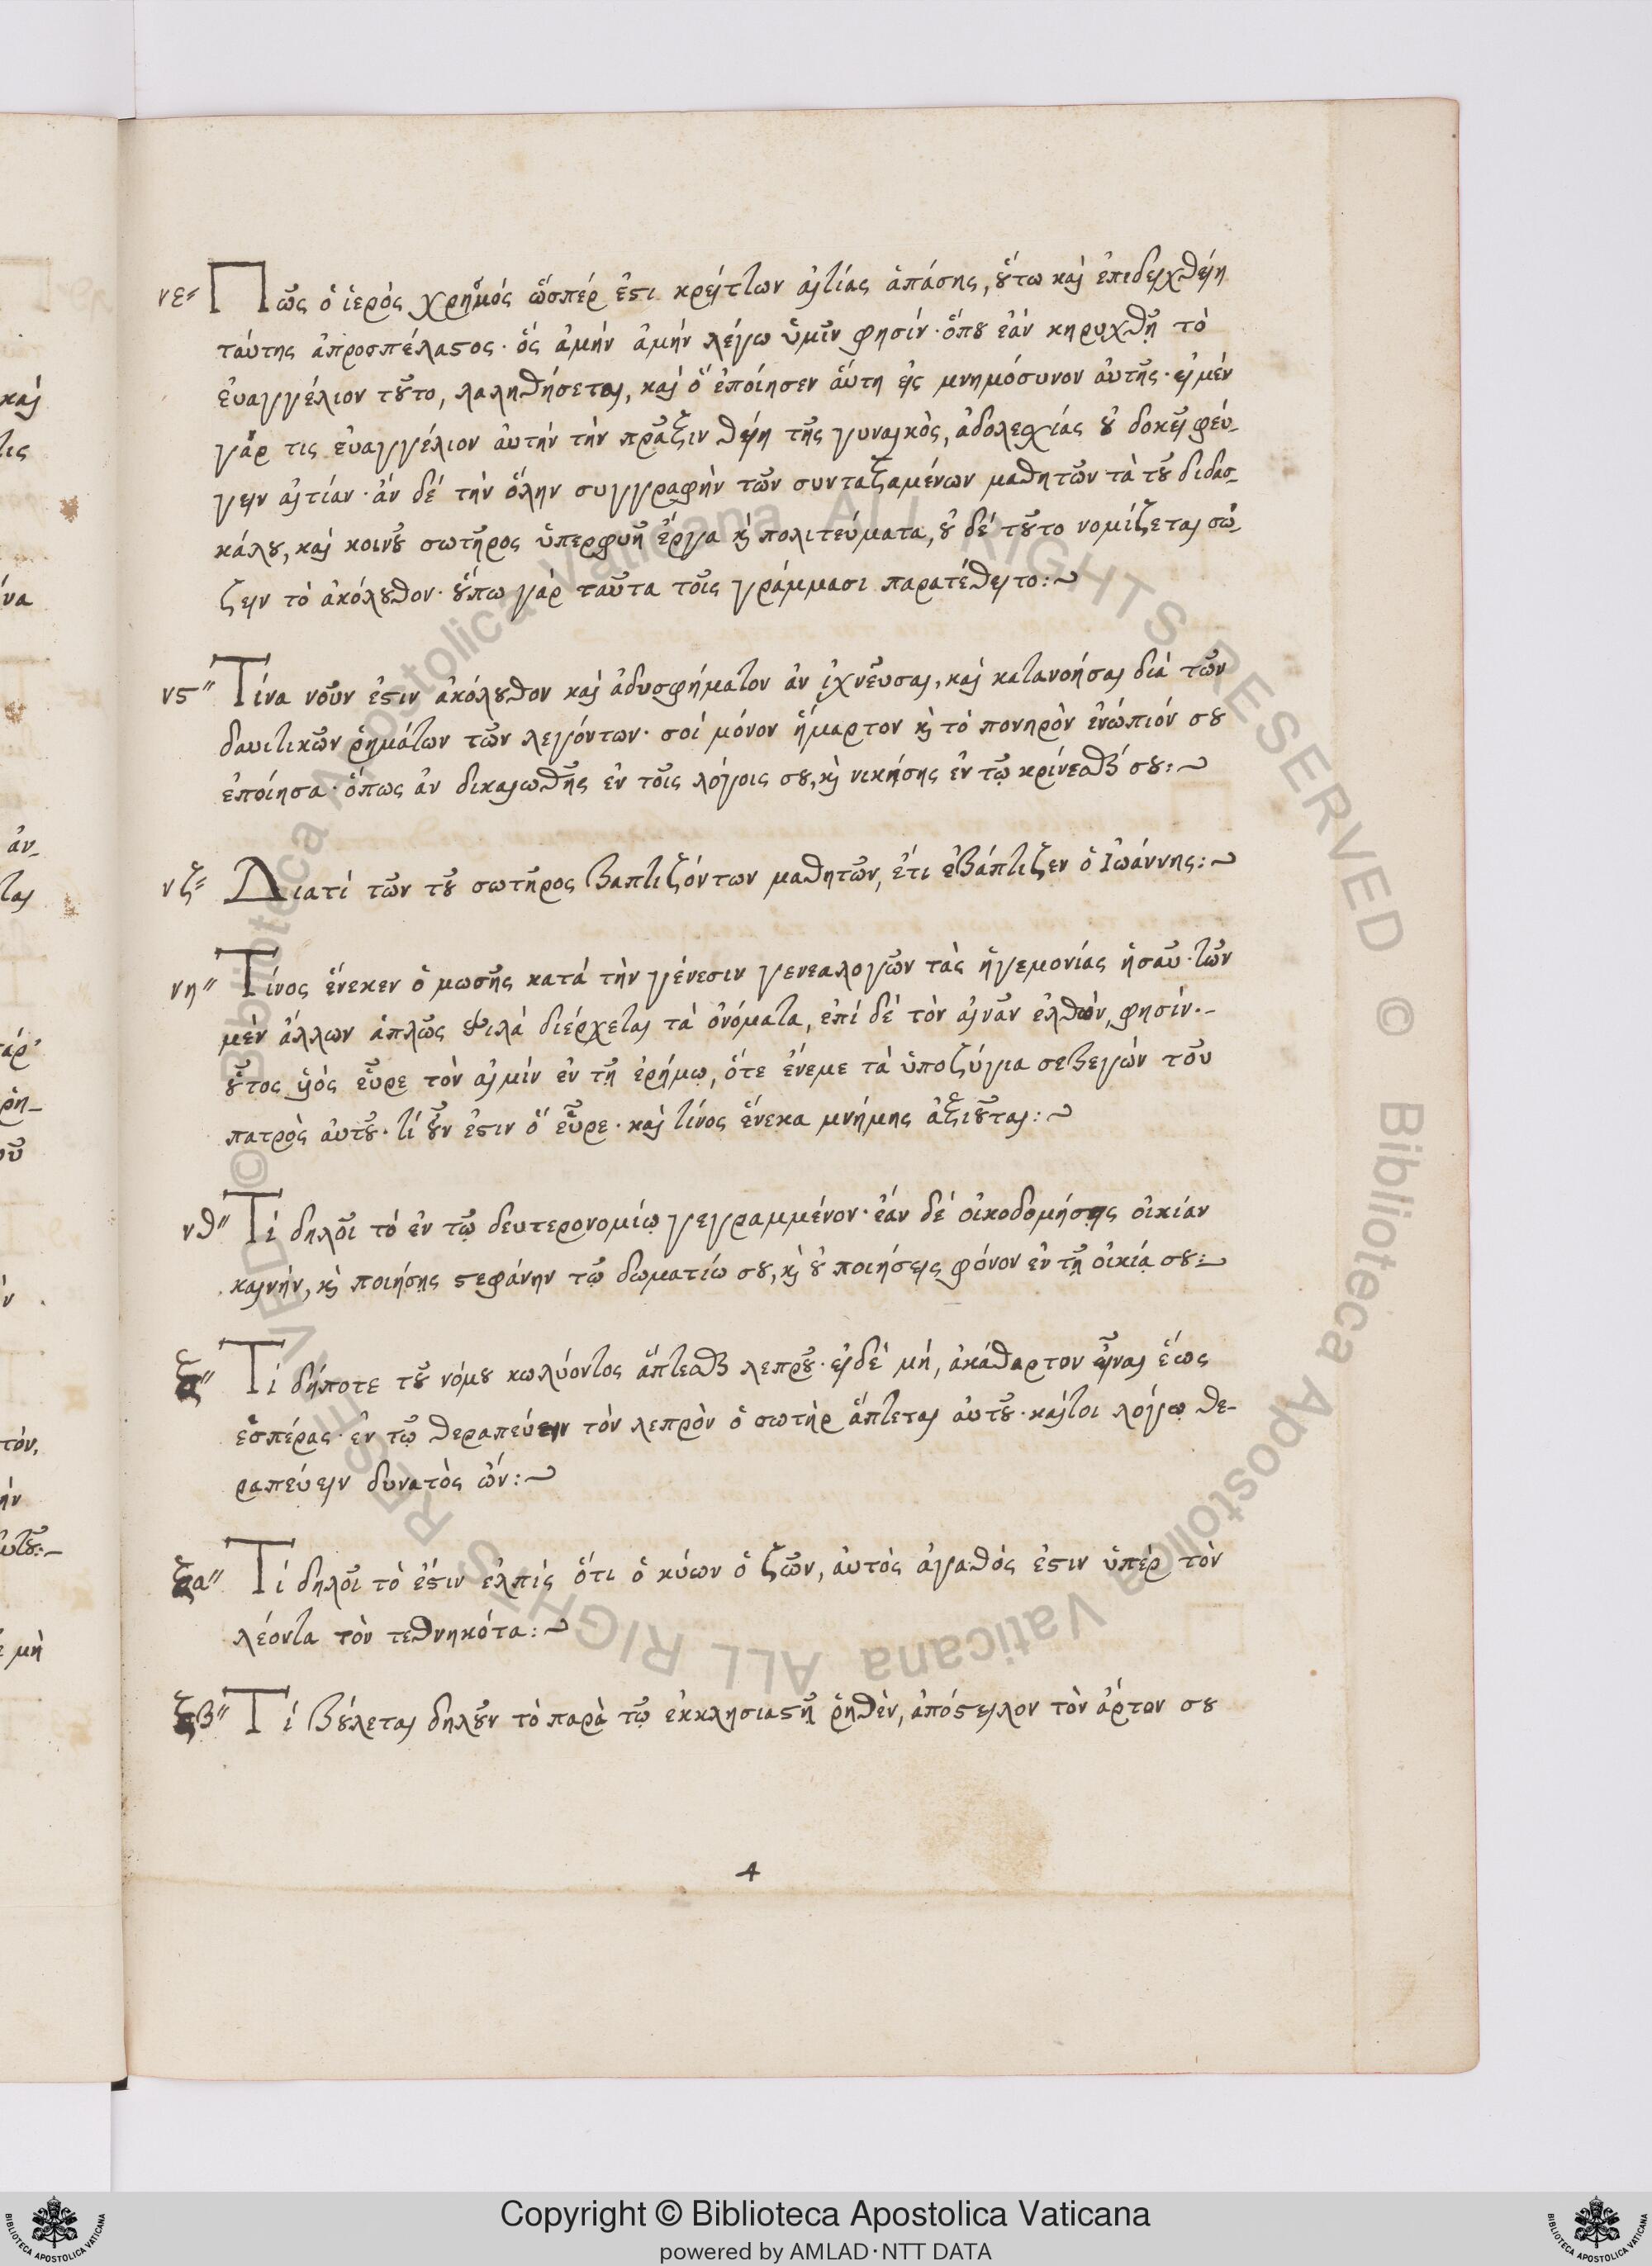 νε´´ Πῶς ὁ ἱερὸς χρησμός ὥσπέρ ἐϛι κρείττων αἰτίας ἁπάσης, ȣ́τω καὶ ἐπιδειχθείη
ταύτης ἀπροσπέλαϛος· ὅς ἀμήν ἀμήν λέγω ὑμῖν φησίν· ὅπȣ ἐάν κηρυχθῇ τὸ
ἐυαγγέλιον τȣ͂το, λαληθήσεται, καὶ ὅ ἐποίησεν ἅυτη εἰς μνημόσυνον ἀυτῆς· εἰ μέν
γάρ τις ἐυαγγέλιον ἀυτήν τὴν πρᾶξιν θείη τῆς γυναικὸς, ἀδολεσχίας ȣ̓ δοκεῖ φέυ-
γειν αἰτίαν· ἀν δέ τὴν ὅλην συγγραφὴν τῶν συνταξαμένων μαθητῶν τὰ τȣ͂ διδασ-
κάλȣ, καὶ κοινȣ͂ σωτῆρος ὑπερφυῆ ἔργα κ̀ πολιτεύματα, ȣ̓ δέ τȣ͂το νομίζεται σώ-
ζειν τὸ ἀκόλȣθον· ȣ́πω γὰρ ταῦτα τοῖς γράμμασι παρατέθειτο:~
νϛ´´ Τίνα νοῦν ἐϛιν ἀκόλȣθον καὶ ἀδυσφήματον ἀν ἰχνεῦσαι, καὶ κατανοήσαι διὰ τῶν
δαυιτικῶν ῥημάτων τῶν λεγόντων· σοί μόνον ἥμαρτον κ̀ τὸ πονηρὸν ἐνώπιόν σȣ
ἐποίησα· ὅπως ἀν δικαιωθῇς ἐν τοῖς λόγοις σȣ, κ̀ νικήσης ἐν τῷ κρίνεσθαί σȣ:~
νζ´´ Διατί τῶν τȣ͂ σωτῆρος βαπτιζόντων μαθητῶν, ἔτι ἐβάπτιζεν ὁ Ἰωάννης:~
νη´´ Τίνος ἕνεκεν ὁ μωσῆς κατά τὴν γένεσιν γενεαλογῶν τὰς ἡγεμονίας ἠσαῦ· τῶν
μὲν ἄλλων ἁπλῶς ψιλὰ διέρχεται τὰ ὀνόματα, ἐπί δὲ τὸν αἰνᾶν ἐλθὼν, φησίν·-
ȣ͂τος υἱὸς εὗρε τὸν αἰμίν ἐν τῇ ἐρήμῳ, ὅτε ἔνεμε τὰ ὑποζύγια σεβεγών τοῦ
πατρὸς ἀυτȣ͂· τί ȣ͂ν ἐϛιν ὅ εὗρε· καὶ τίνος ἕνεκα μνήμης ἀξιȣ͂ται:~
νθ´´ Τί δηλοῖ τὸ ἐν τῷ δευτερονομίῳ γεγραμμένον· ἐάν δὲ οἰκοδομήσῃς οἰκίαν
καινήν, κ̀ ποιήσῃς ϛεφάνην τῷ δωματίῳ σȣ, κ̀ ȣ̓ ποιήσεις φόνον ἐν τῇ οἰκίᾳ σȣ:~
ξ´´ Τί δήποτε τȣ͂ νόμȣ κωλύοντος ἅπτεσθαι λεπρȣ͂· εἰ δέ μή, ἀκάθαρτον εἶναι ἕως
ἑσπέρας· ἐν τῷ θεραπεύειν τὸν λεπρὸν ὁ σωτὴρ ἅπτεται ἀυτȣ͂· καίτοι λόγῳ θε-
ραπεύειν δυνατὸς ὤν:~
ξα´´ Τί δηλοῖ τὸ ἔϛιν ἐλπίς ὅτι ὁ κύων ὁ ζῶν, ἀυτὸς ἀγαθός ἐϛιν ὑπέρ τὸν
λέοντα τὸν τεθνηκότα:~
ξβ´´ Τί βȣ́λεται δηλȣ͂ν τὸ παρὰ τῷ ἐκκλησιαϛῇ ῥηθὲν, ἀπόϛειλον τὸν ἄρτον σȣ
4
Copyright © Biblioteca Apostolica Vaticana
powered by AMLAD·NTT DATA